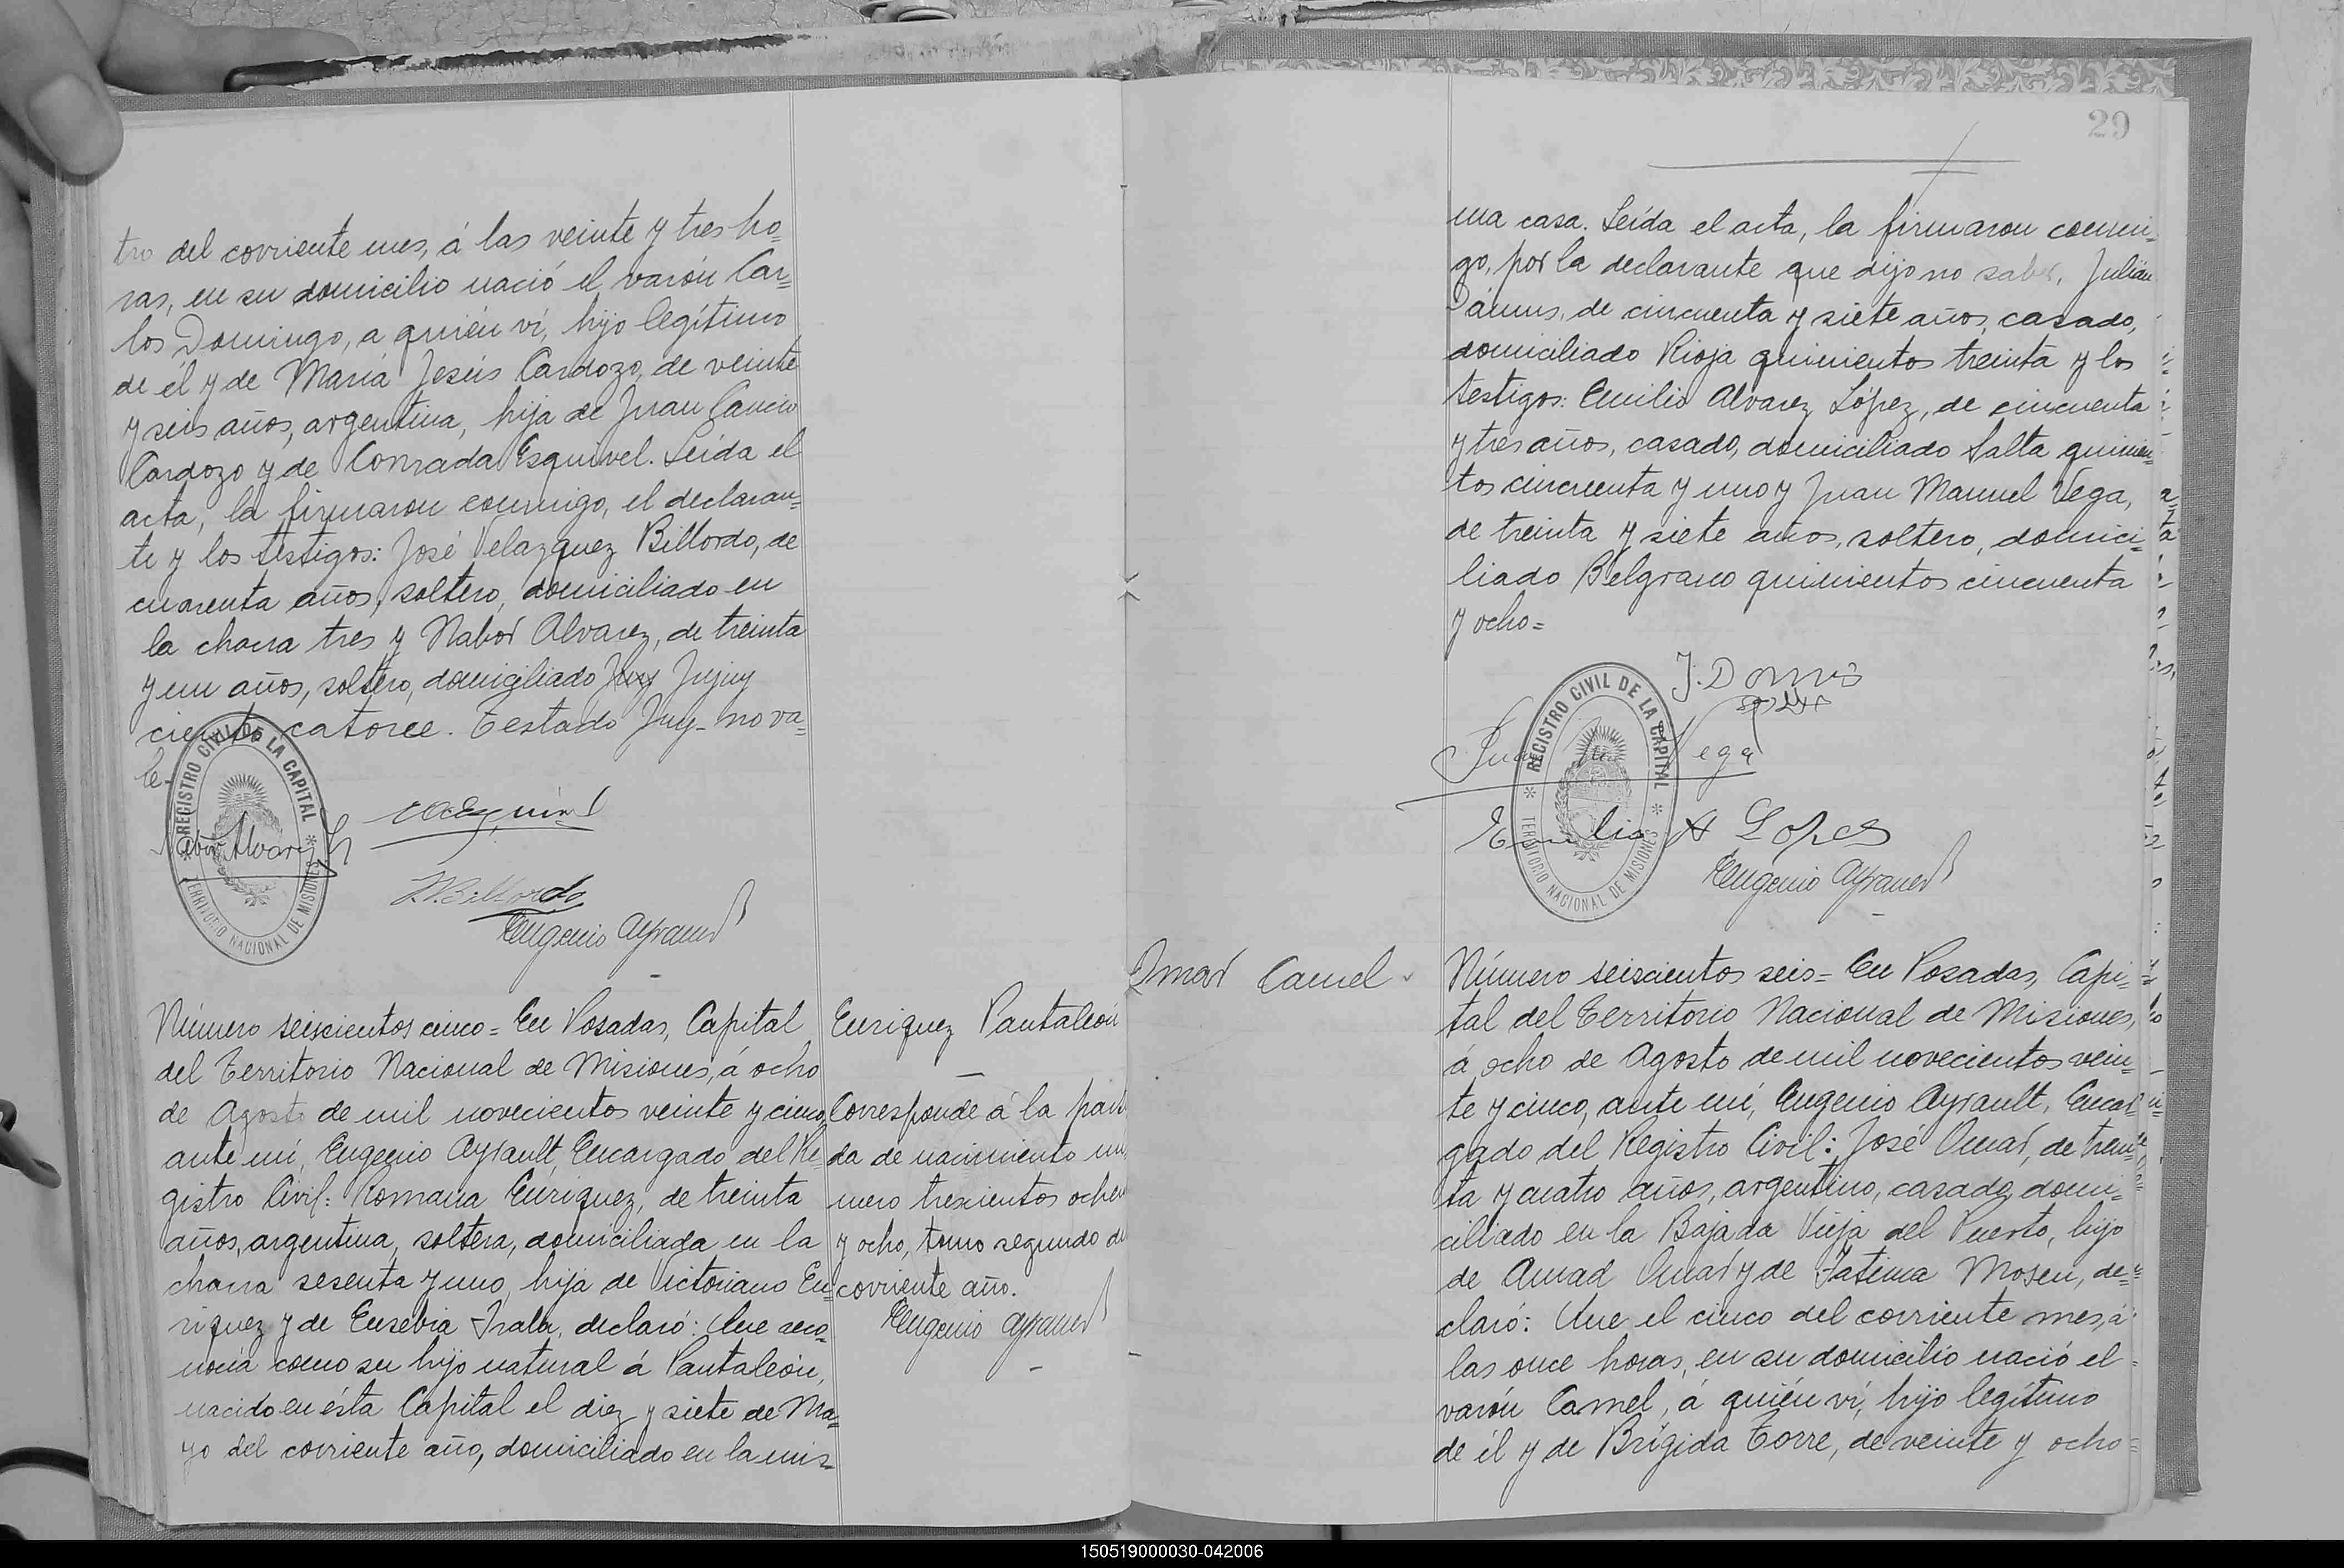 tro del corriente mes, á las veinte y tres ho=
ras, en su domicilio nació el varón Car=
los Domingo, a quién ví, hijo legítimo
de él y de María Jesús Cardozo, de veinte
y seis años, argentina, hija de Juan Cancio
Cardozo y de Conrada Esquivel. Leída el
acta, la firmaron conmigo, el declaran=
te y los testigos: José Velazquez Billordo, de
cuarenta años, soltero, domiciliado en
la chacra tres y Nabor Alvarez, de treinta
y un años, soltero, domiciliado Juy Jujuy
ciento catorce. Testado Juy_ no va=
le.
REGISTRO CIVIL DE LA CAPITAL
TERRITORIO NACIONAL DE MISIONES
Nabor Alvarez
J.V. Billordo
Eugenio Ayrault
Número seiscientos cinco= En Posadas, Capital
del Territorio Nacional de Misiones, á ocho
de Agosto de mil novecientos veinte y cinco,
ante mí, Eugenio Ayrault, Encargado del Re=
gistro Civil: Romana Enriquez, de treinta
años, argentina, soltera, domiciliada en la
chacra sesenta y uno, hija de Victoriano En=
riquez y de Eusebia Irala, declaró: Que reco=
nocía como su hijo natural á Pantaleón,
nacido en ésta Capital el diez y siete de Ma=
yo del corriente año, domiciliado en la mis=
Enriquez Pantaleón
Corresponde á la parti
da de nacimiento nú
mero trescientos ochen
y ocho, tomo segundo del
corriente año.
Eugenio Ayrault
29
ma casa. Leída el acta, la firmaron conmi=
go, por la declarante que dijo no saber, Julián
de cincuenta y siete años, casado,
domiciliado Rioja quinientos treinta y los
testigos: Emilio Alvarez López, de cincuenta
y tres años, casado, domiciliado Salta quinien=
tos cincuenta y uno y Juan Manuel Vega,
de treinta y siete años, soltero, domici=
liado Belgrano quinientos cincuenta
y ocho=
REGISTRO CIVIL DE LA CAPITAL
TERRITORIO NACIONAL DE MISIONES
Juan M Vega
Emilio A Lopes
Eugenio Ayrault
Omar Camel
Número seiscientos seis= En Posadas, Capi=
tal del Territorio Nacional de Misiones,
á ocho de Agosto de mil novecientos vein=
te y cinco, ante mí, Eugenio Ayrault, Encar=
gado del Registro Civil: José Omar, de trein=
ta y cuatro años, argentino, casado, domi=
ciliado en la Bajada Vieja del Puerto, hijo
de Amad Omar y de Fatima Mosen, de=
claró: Que el cinco del corriente mes, á
las once horas, en su domicilio nació el
varón Camel, á quién ví, hijo legítimo
de él y de Brígida Torre, de veinte y ocho=
150519000030-042006